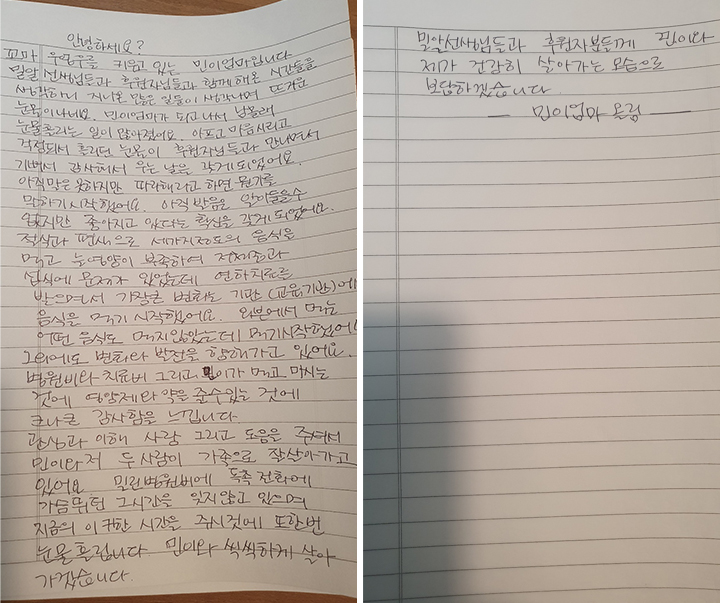 안녕하세요?
꼬마 우주를 키우고 있는 민이엄마입니다
밀알 선생님들과 후원자님들과 함께해온 시간들을
생각하니 지나온 많은 일들이 생각나며 뜨거운
눈물이나네요. 민이엄마가 되고나서 남몰래
눈물흘리는 일이 많아졌어요. 아프고 마음시리고
걱정되서 흘리던 눈물이 후원자님들과 만나면서
기뻐서 감사해서 우는 날을 갖게되었어요.
아직많은 못하지만 따라해라고 하면 뭔가를
말하기시작했어요. 아직 발음은 알아들을수
없지만 좋아지고 있다는 확신을 갖게되었어요.
절식과 편식으로 세가지정도의 음식을
먹고 늘영양이 부족하여 저체중과
섭식에 문제가 있었는데 연하치료를
받으면서 가장큰 변화는 기관 (교육기관)에서
음식을 먹기 시작했어요. 외부에서 먹는
어떤 음식도 먹지않았는데 먹기시작했어요
그외에도 변화와 발전을 향해가고 있어요.
병원비와 치료비 그리고 민이가 먹고 마시는
것에 영양제와 약을 줄수있는 것에
크나큰 감사함을 느낍니다
관심과 이해 사랑 그리고 도움을 주셔서
민이와저 두사람이 가족으로 잘살아가고
있어요 밀린병원비에 독촉 전화에
가슴뛰던 그시간을 잊지않고 있으며
지금의 이 귀한 시간을 주시것에 또한번
눈물흘립니다 민이와 씩씩하게 살아
가겠습니다.
밀알선생님들과 후원자분들께 민이와
제가 건강히 살아가는 모습으로
보답하겠습니다.
— 민이엄마 올림 —